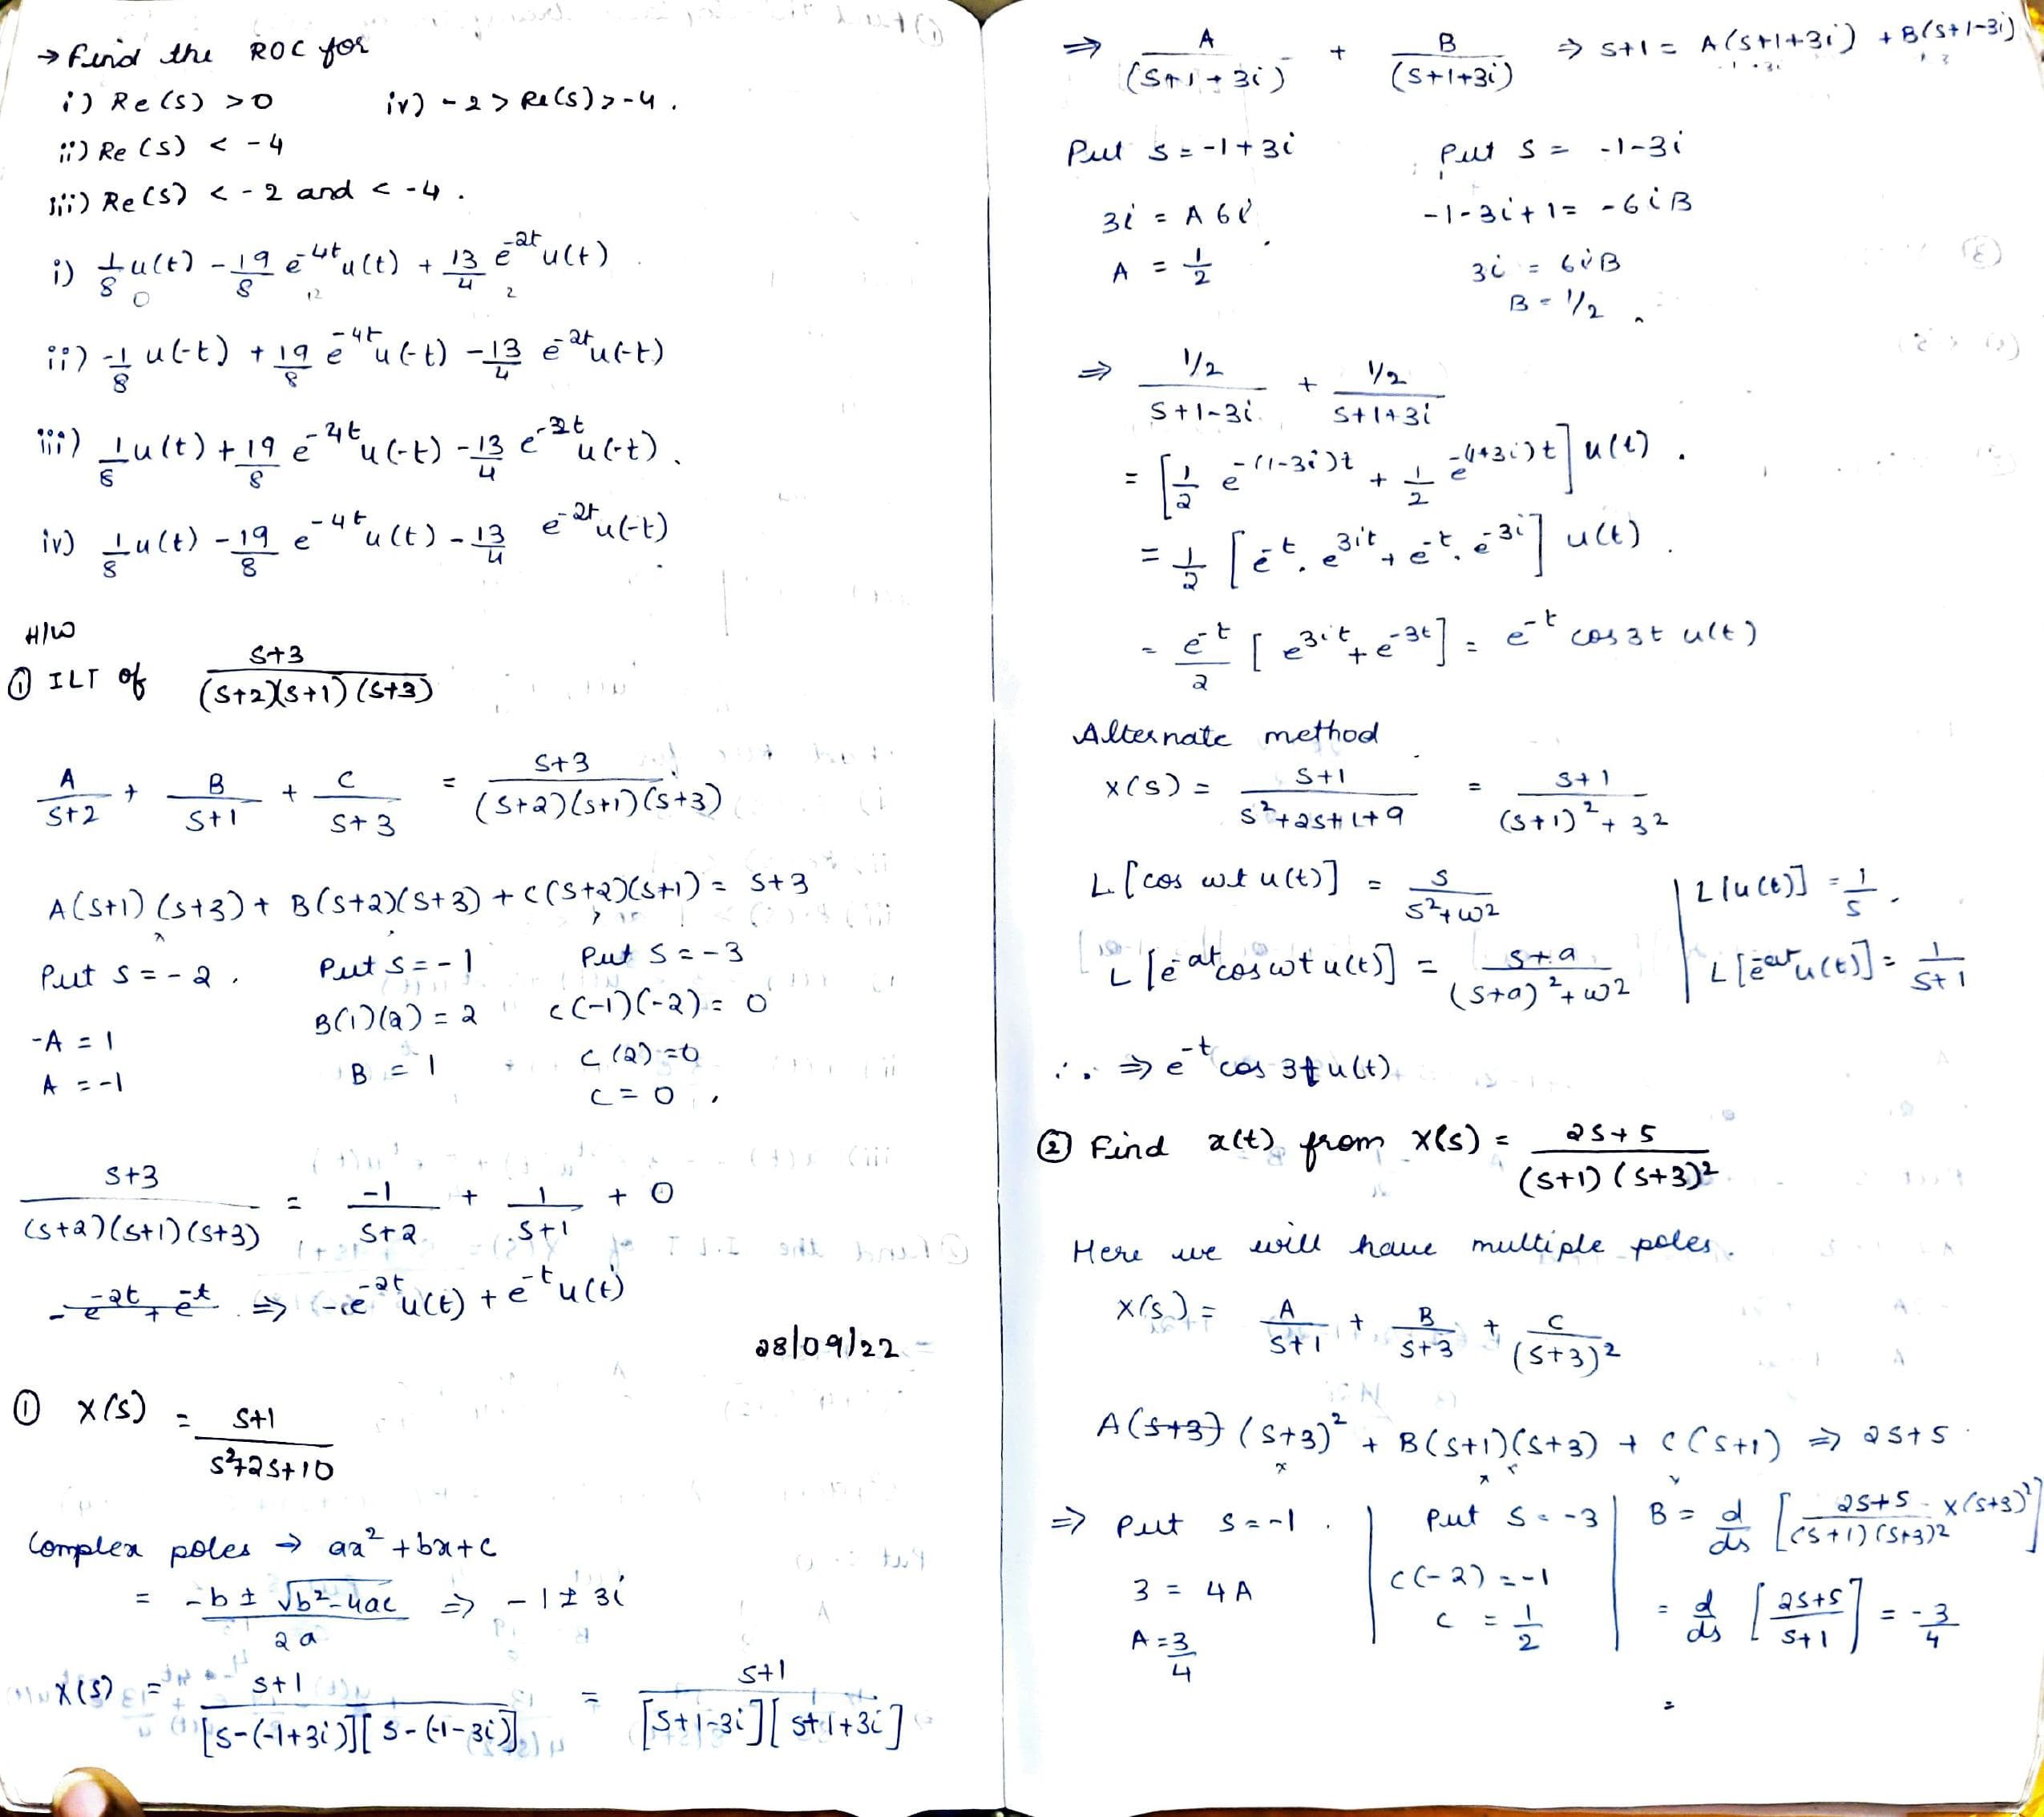 → Find the ROC for
i) Re(s) > 0    iv) -2 > Re(s) > -4.
ii) Re(s) < -4
iii) Re(s) < -2 and < -4.
i) 1/8 u(t) - 19/8 e^-4t u(t) + 13/4 e^-2t u(t)
ii) -1/8 u(-t) + 19/8 e^-4t u(-t) - 13/4 e^-2t u(-t)
iii) 1/8 u(t) + 19/8 e^-4t u(-t) - 13/4 e^-2t u(-t).
iv) 1/8 u(t) - 19/8 e^-4t u(t) - 13/4 e^-2t u(-t)
H/W
① ILT of (s+3)/((s+2)(s+1)(s+3))
A/(s+2) + B/(s+1) + C/(s+3) = (s+3)/((s+2)(s+1)(s+3))
A(s+1)(s+3) + B(s+2)(s+3) + C(s+2)(s+1) = s+3
Put s=-2,    Put s=-1    Put s=-3
-A = 1    B(1)(2) = 2    C(-1)(-2) = 0
A = -1    B = 1    C(2) = 0
C = 0,
(s+3)/((s+2)(s+1)(s+3)) = -1/(s+2) + 1/(s+1) + 0
-e^-2t + e^-t ⇒ -e^-2t u(t) + e^-t u(t)
28/09/22
① X(s) = (s+1)/(s²+2s+10)
Complex poles → ax²+bx+c
= (-b ± √(b²-4ac))/2a ⇒ -1 ± 3i
X(s) = (s+1)/([s-(-1+3i)][s-(-1-3i)]) = (s+1)/([s+1-3i][s+1+3i])
⇒ A/(s+1+3i) + B/(s+1+3i) ⇒ s+1 = A(s+1+3i) + B(s+1-3i)
Put s = -1+3i    Put s = -1-3i
3i = A6i    -1-3i+1 = -6iB
A = 1/2    3i = 6iB
B = 1/2
⇒ (1/2)/(s+1-3i) + (1/2)/(s+1+3i)
= [1/2 e^-(1-3i)t + 1/2 e^-(1+3i)t] u(t).
= 1/2 [e^-t. e^3it + e^-t. e^-3i] u(t).
= e^-t/2 [e^3it + e^-3t] = e^-t cos3t u(t)
Alternate method
X(s) = (s+1)/(s²+2s+1+9) = (s+1)/((s+1)²+3²)
L[cos wt u(t)] = s/(s²+w²)    L[u(t)] = 1/s.
L[e^-at cos wt u(t)] = (s+a)/((s+a)²+w²)    L[e^-at u(t)] = 1/(s+1)
∴ ⇒ e^-t cos 3t u(t)
② Find x(t) from X(s) = (2s+5)/((s+1)(s+3)²)
Here we will have multiple poles.
X(s) = A/(s+1) + B/(s+3) + C/(s+3)²
A(s+3)(s+3)² + B(s+1)(s+3) + C(s+1) ⇒ 2s+5
⇒ Put s=-1.    Put s=-3    B = d/ds [(2s+5)/((s+1)(s+3)²) × (s+3)²]
3 = 4A    C(-2) = -1    = d/ds [(2s+5)/(s+1)] = -3/4
A = 3/4    C = 1/2
=